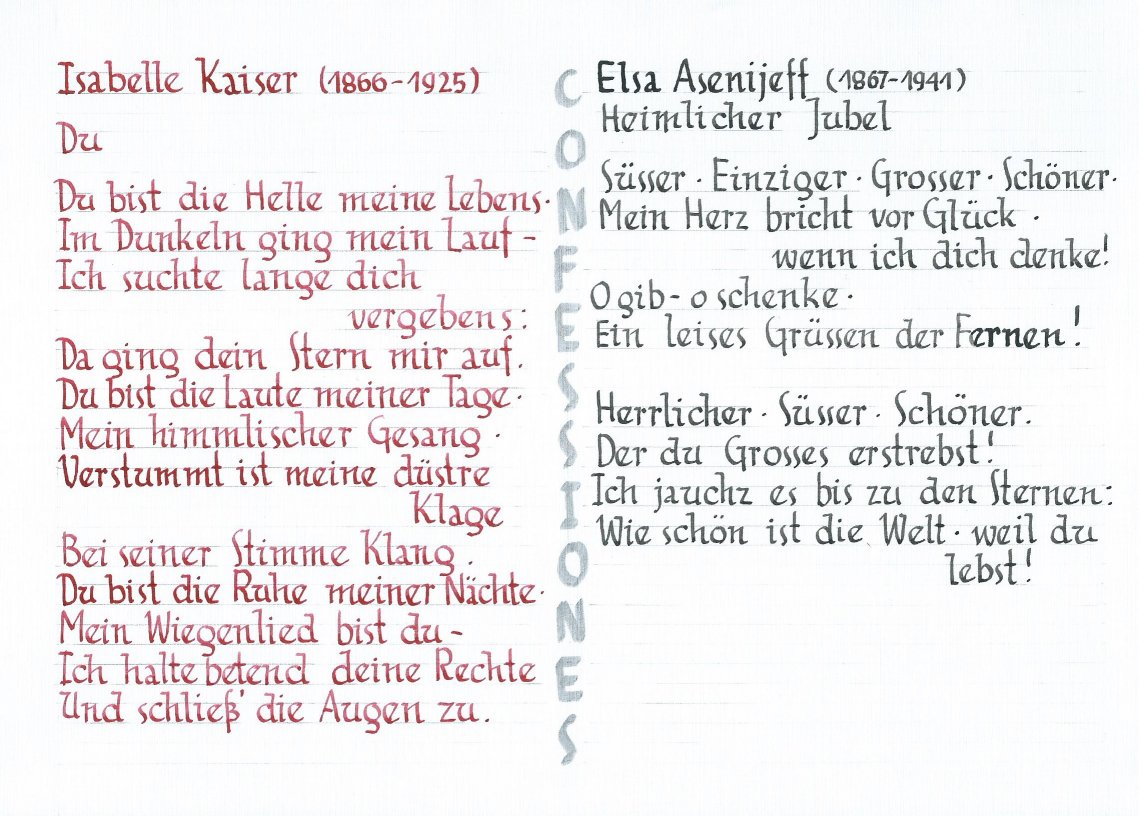 Isabelle Kaiser (1866-1925)
Du
Du bist die Helle meine Lebens·
Im Dunkeln ging mein Lauf -
Ich suchte lange dich
vergebens:
Da ging dein Stern mir auf.
Du bist die Laute meiner Tage·
Mein himmlischer Gesang ·
Verstummt ist meine düstre
Klage
Bei seiner Stimme Klang.
Du bist die Ruhe meiner Nächte·
Mein Wiegenlied bist du -
Ich halte betend deine Rechte
Und schließ' die Augen zu.
CONFESSIONES
Elsa Asenijeff (1867-1941)
Heimlicher Jubel
Süsser · Einziger · Grosser · Schöner·
Mein Herz bricht vor Glück ·
wenn ich dich denke!
O gib - o schenke ·
Ein leises Grüssen der Fernen!
Herrlicher · Süsser · Schöner.
Der du Grosses erstrebst!
Ich jauchz es bis zu den Sternen:
Wie schön ist die Welt · weil du
lebst!